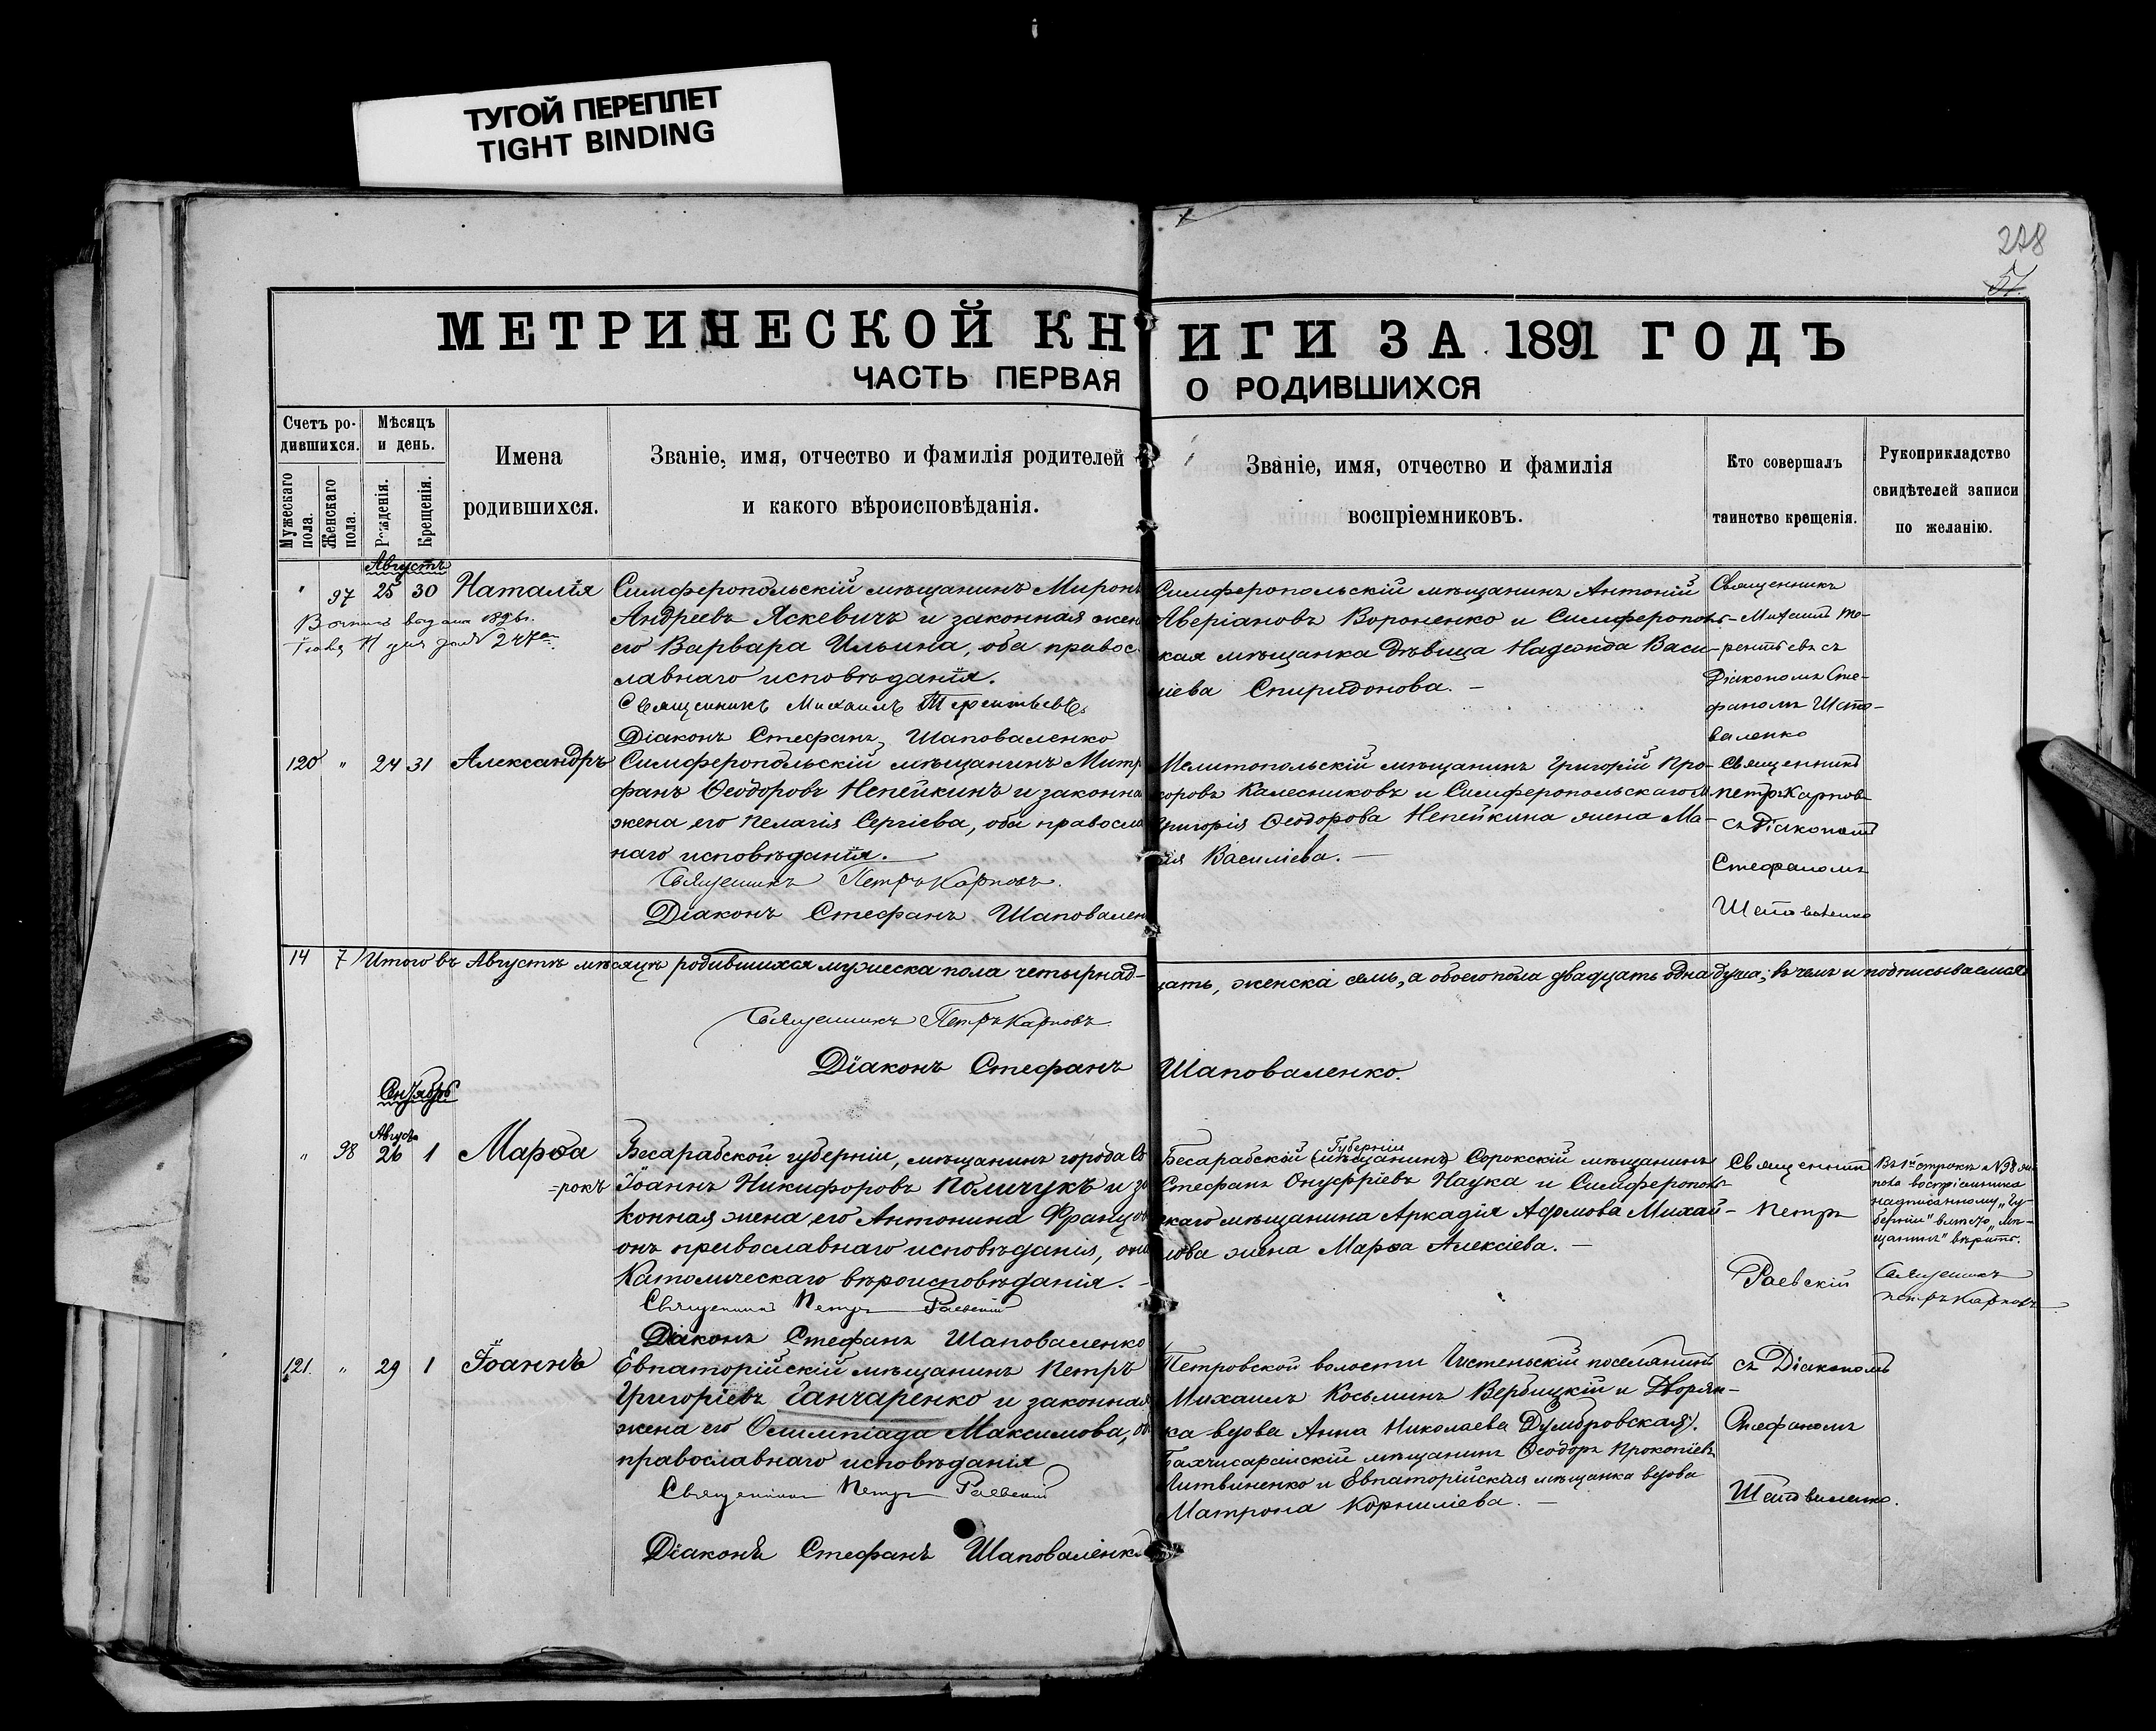 ТУГОЙ ПЕРЕПЛЕТ
TIGHT BINDING
278
57.
МЕТРИЧЕСКОЙ КНИГИ ЗА 1891 ГОДЪ
ЧАСТЬ ПЕРВАЯ О РОДИВШИХСЯ
Счетъ ро-
дившихся.
Мужескаго
пола.
Женскаго
пола.
Мѣсяцъ
и день.
Рожденія.
Крещенія.
Имена
родившихся.
Званіе, имя, отчество и фамилія родителей
и какого вѣроисповѣданія.
Званіе, имя, отчество и фамилія
воспріемниковъ.
Кто совершалъ
таинство крещенія.
Рукоприкладство
свидѣтелей записи
по желанію.
Августъ
" 97 25 30 Наталія
выдана
247
Симферопольскій мѣщанинъ Миронъ
Андреевъ Яскевичъ и законная жен
его Варвара Ильина, оба правос
лавнаго исповѣданія.
Священникъ Михаилъ Терентьевъ
Діаконъ Стефанъ Шаповаленко
Симферопольскій мѣщанинъ Антоній
Аверіановъ Вороненко и Симферополь-
ская мѣщанка дѣвица Надежда Васи-
ліева Спиридонова. –
Священникъ
Михаилъ Те-
рентьевъ съ
Діакономъ Сте-
фаномъ Шапо-
валенко
120 " 24 31 Александръ
Симферопольскій мѣщанинъ Митр
фанъ Ѳеодоровъ Непейкинъ и законна
жена его Пелагія Сергіева, оба правосла
наго исповѣданія.
Священникъ Петръ Карповъ.
Діаконъ Стефанъ Шаповален
Мелитопольскій мѣщанинъ Григорій Про-
хоровъ Калесниковъ и Симферопольскаго м
Григорія Ѳеодорова Непейкина жена Ма-
рія Василіева. –
Священникъ
Петръ Карповъ
съ Діакономъ
Стефаномъ
Шаповаленко
14 7 Итого въ Августѣ мѣсяцѣ родившихся мужеска пола четырнад-
цать, женска семь, а обоего пола двадцать одна душа; въ чемъ и подписываемся
Священникъ Петръ Карповъ
Діаконъ Стефанъ Шаповаленко.
Сентябрь
Августа
" 98 26 1 Марѳа
Бесарабской губерніи, мѣщанинъ города Со
=рокъ Іоаннъ Никифоровъ Поличукъ и за
конная жена его Антонина Францов
онъ православнаго исповѣданія, она
Католическаго вѣроисповѣданія. –
Священникъ Петръ Раевскій
Діаконъ Стефанъ Шаповаленко
Губерніи
Бесарабской (мѣщанинъ) Сорокскій мѣщанинъ
Стефанъ Онуфріевъ Наука и Симферополь-
скаго мѣщанина Аркадія Михай-
лова жена Марѳа Алексіева. –
Священникъ
Петръ
Раевскій
Въ 1й строкѣ №98
воспріемника
надписанному „гу-
берніи" вмѣсто „мѣ-
щанинъ" вѣрить.
Священникъ
Петръ Карповъ
121. " 29 1 Іоаннъ
Евпаторійскій мѣщанинъ Петръ
Григоріевъ Ганчаренко и законная
жена его Олимпіада Максимова, об
православнаго исповѣданія
Священникъ Петръ Раевскій
Діаконъ Стефанъ Шаповаленко
Петровской волости Чистенскій поселянинъ
Михаилъ Косьминъ Вербицкій и Дворян-
ка вдова Анна Николаева Думбровская.
Бахчисарайскій мѣщанинъ Ѳеодоръ Прокопіевъ
Литвиненко и Евпаторійская мѣщанка вдова
Матрона Корниліева. –
съ Діакономъ
Стефаномъ
Шаповаленко.